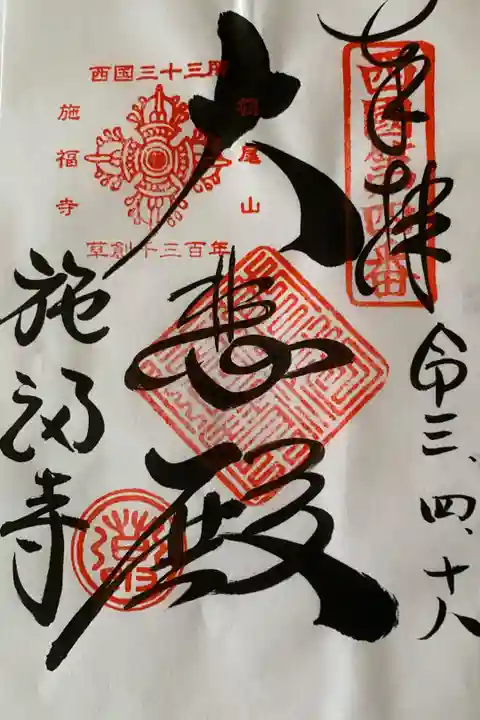 奉拝
西國第四番
令三、四、十八
大悲殿
西国三十三所
槇尾山
施福寺
草創千三百年
施福寺